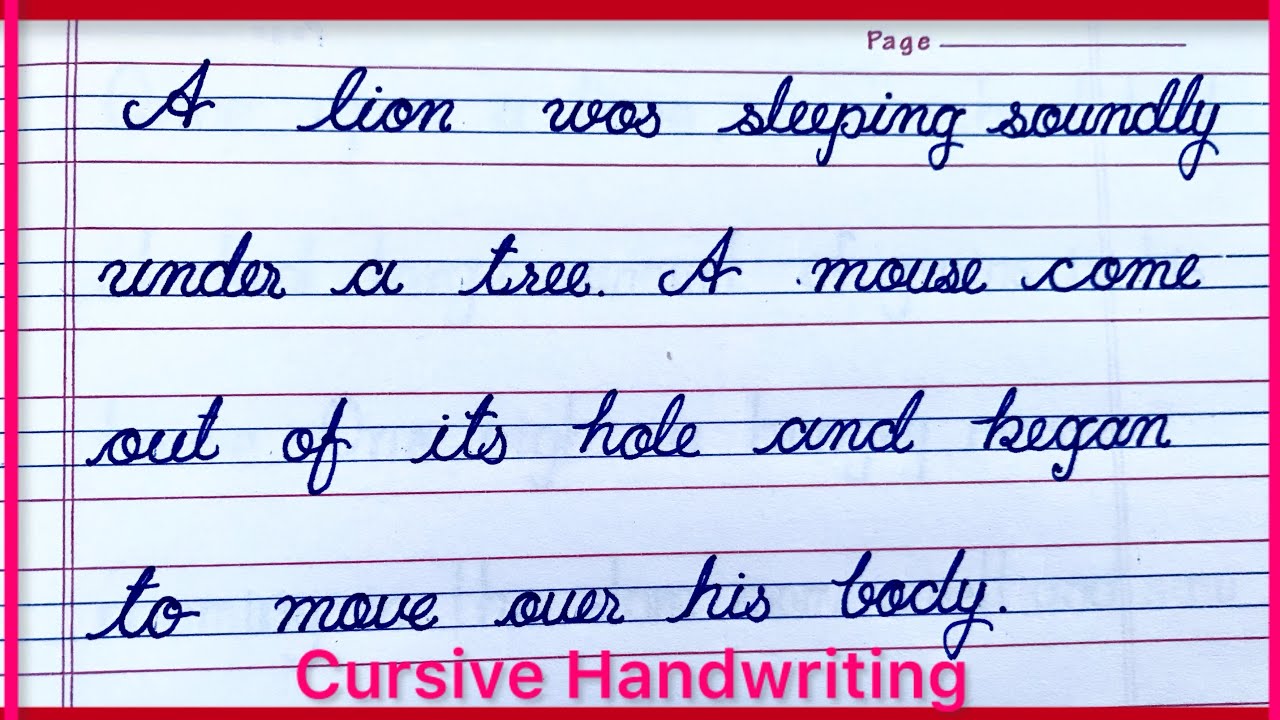 Page
A lion was sleeping soundly
under a tree. A mouse come
out of its hole and began
to move over his body.
Cursive Handwriting